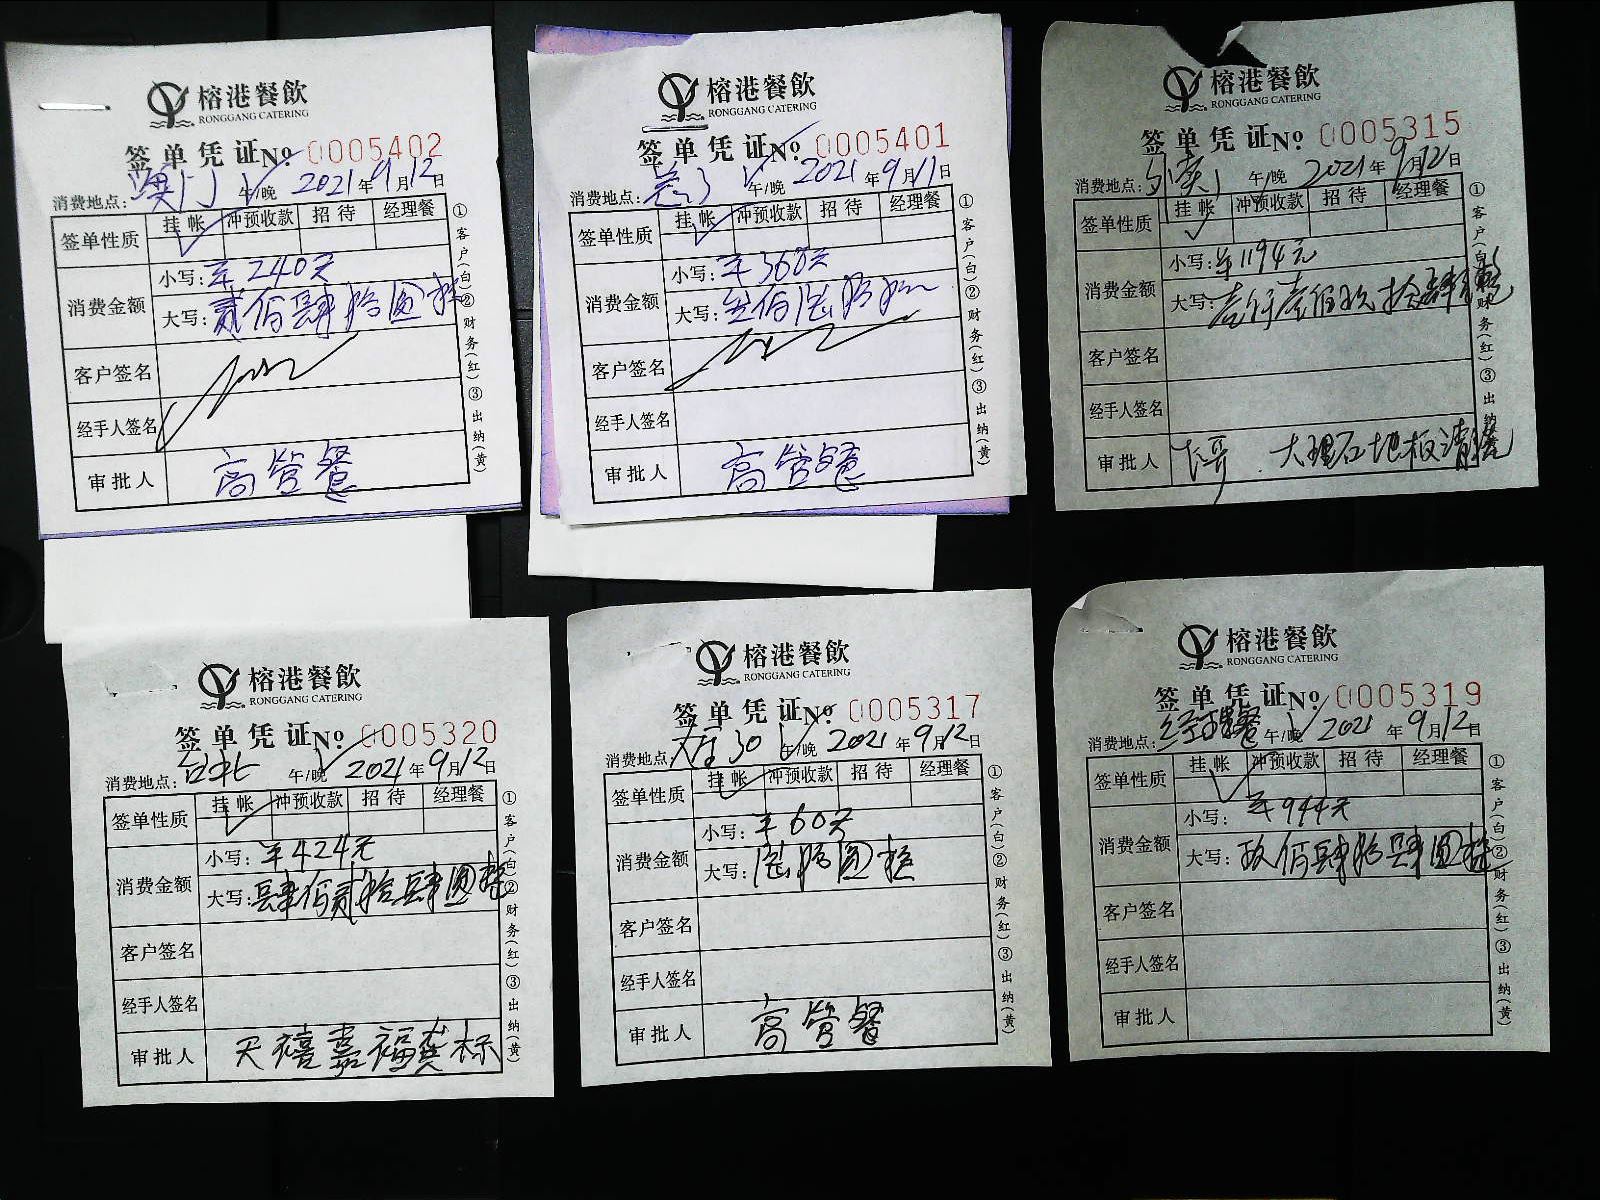 榕港餐飲
RONGGANG CATERING
签单凭证 No. 0005402
消费地点: 澳门 午/晚 2021年9月12日
签单性质 挂帐 冲预收款 招待 经理餐
消费金额 小写: ¥240元
大写: 贰佰肆拾圆整
客户签名
经手人签名
审批人 高管餐
①客户(白)②财务(红)③出纳(黄)
榕港餐飲
RONGGANG CATERING
签单凭证 No. 0005401
消费地点: 午/晚 2021年9月11日
签单性质 挂帐 冲预收款 招待 经理餐
消费金额 小写: ¥360元
大写: 叁佰陆拾
客户签名
经手人签名
审批人 高管餐
①客户(白)②财务(红)③出纳(黄)
榕港餐飲
RONGGANG CATERING
签单凭证 No. 0005315
消费地点: 午/晚 2021年9月12日
签单性质 挂帐 冲预收款 招待 经理餐
消费金额 小写: ¥1194元
大写: 壹仟壹佰玖拾肆
客户签名
经手人签名
审批人 大理石地板清
①客户(白)②财务(红)③出纳(黄)
榕港餐飲
RONGGANG CATERING
签单凭证 No. 0005320
消费地点: 台北 午/晚 2021年9月12日
签单性质 挂帐 冲预收款 招待 经理餐
消费金额 小写: ¥424元
大写: 肆佰贰拾肆圆整
客户签名
经手人签名
审批人 天禧嘉福龚标
①客户(白)②财务(红)③出纳(黄)
榕港餐飲
RONGGANG CATERING
签单凭证 No. 0005317
消费地点: 大厅30 午/晚 2021年9月12日
签单性质 挂帐 冲预收款 招待 经理餐
消费金额 小写: ¥60元
大写: 陆拾圆整
客户签名
经手人签名
审批人 高管餐
①客户(白)②财务(红)③出纳(黄)
榕港餐飲
RONGGANG CATERING
签单凭证 No. 0005319
消费地点: 经理餐 午/晚 2021年9月12日
签单性质 挂帐 冲预收款 招待 经理餐
消费金额 小写: ¥944元
大写: 玖佰肆拾肆圆整
客户签名
经手人签名
审批人
①客户(白)②财务(红)③出纳(黄)